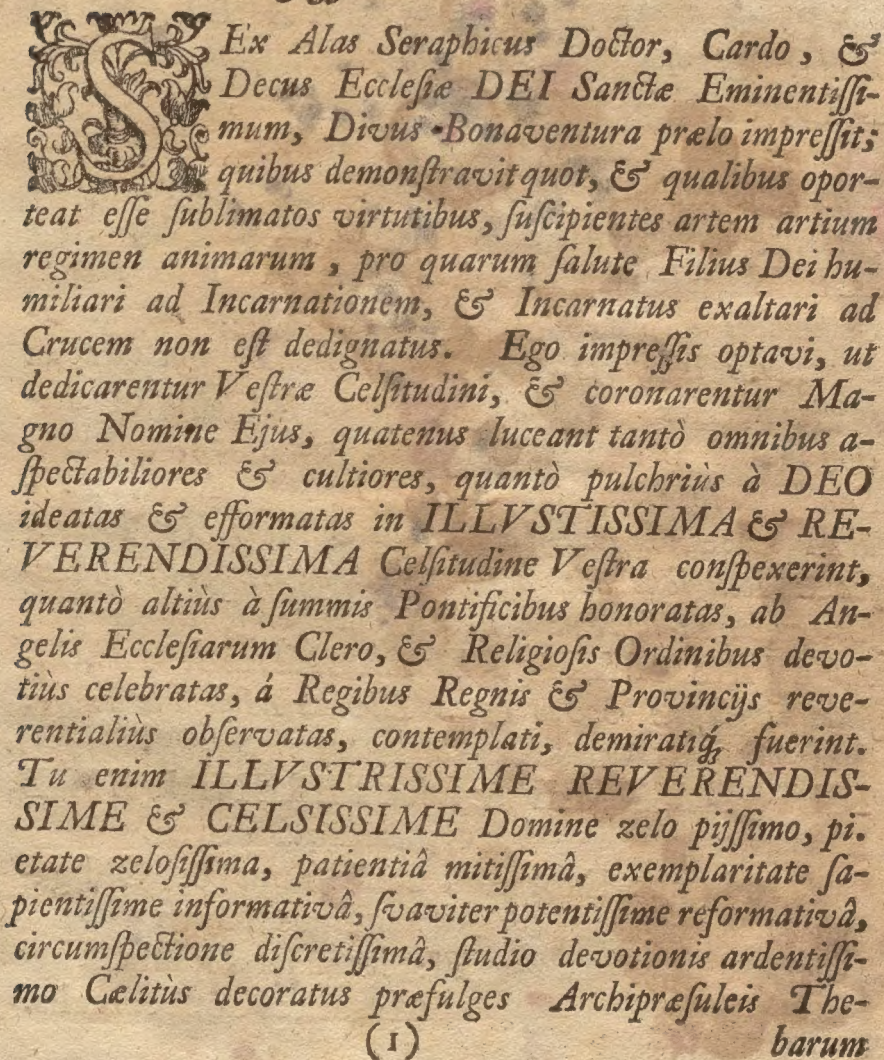 SEx Alas Seraphicus Doctor, Cardo, &
Decus Ecclesiæ DEI Sanctæ Eminentissi-
mum, Divus Bonaventura prælo impressit;
quibus demonstravit quot, & qualibus opor-
teat esse sublimatos virtutibus, suscipientes artem artium
regimen animarum, pro quarum salute Filius Dei hu-
miliari ad Incarnationem, & Incarnatus exaltari ad
Crucem non est dedignatus. Ego impressis optavi, ut
dedicarentur Vestræ Celsitudini, & coronarentur Ma-
gno Nomine Ejus, quatenus luceant tantò omnibus a-
spectabiliores & cultiores, quantò pulchriùs à DEO
ideatas & efformatas in ILLVSTISSIMA & RE-
VERENDISSIMA Celsitudine Vestra conspexerint,
quantò altiùs à summis Pontificibus honoratas, ab An-
gelis Ecclesiarum Clero, & Religiosis Ordinibus devo-
tiùs celebratas, á Regibus Regnis & Provincijs reve-
rentialiùs observatas, contemplati, demiratiq́; fuerint.
Tu enim ILLVSTRISSIME REVERENDIS-
SIME & CELSISSIME Domine zelo pijssimo, pi.
etate zelosissima, patientiâ mitissimâ, exemplaritate sa-
pientissime informativâ, svaviter potentissime reformativâ,
circumspectione discretissimâ, studio devotionis ardentissi-
mo Cælitùs decoratus præfulges Archipræsuleis The-
(1) barum